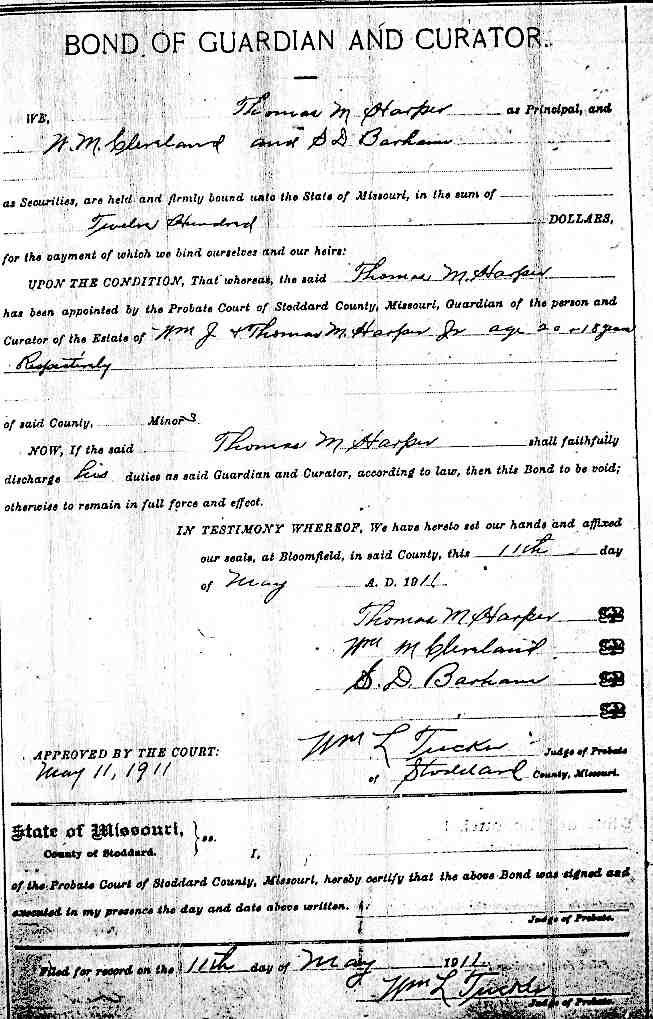 BOND OF GUARDIAN AND CURATOR.
WE, Thomas M Harper as Principal, and
W. M. Cleveland and S D Barham
as Securities, are held and firmly bound unto the State of Missouri, in the sum of
Twelve Hundred DOLLARS,
for the payment of which we bind ourselves and our heirs:
UPON THE CONDITION, That whereas, the said Thomas M. Harper
has been appointed by the Probate Court of Stoddard County, Missouri, Guardian of the person and
Curator of the Estate of Wm J & Thomas M. Harper Jr age 20 & 18 years
Respectively
of said County, Minors
NOW, If the said Thomas M Harper shall faithfully
discharge his duties as said Guardian and Curator, according to law, then this Bond to be void;
otherwise to remain in full force and effect.
IN TESTIMONY WHEREOF, We have hereto set our hands and affixed
our seals, at Bloomfield, in said County, this 11th day
of May A. D. 1911
Thomas M Harper
Wm M Cleveland
S. D. Barham
APPROVED BY THE COURT: Wm L Tucker Judge of Probate
May 11, 1911 of Stoddard County, Missouri.
State of Missouri, } ss.
County of Stoddard. I,
of the Probate Court of Stoddard County, Missouri, hereby certify that the above Bond was signed and
executed in my presence the day and date above written.
Judge of Probate.
Filed for record on the 11th day of May 1911
Wm L Tucker
Judge of Probate.